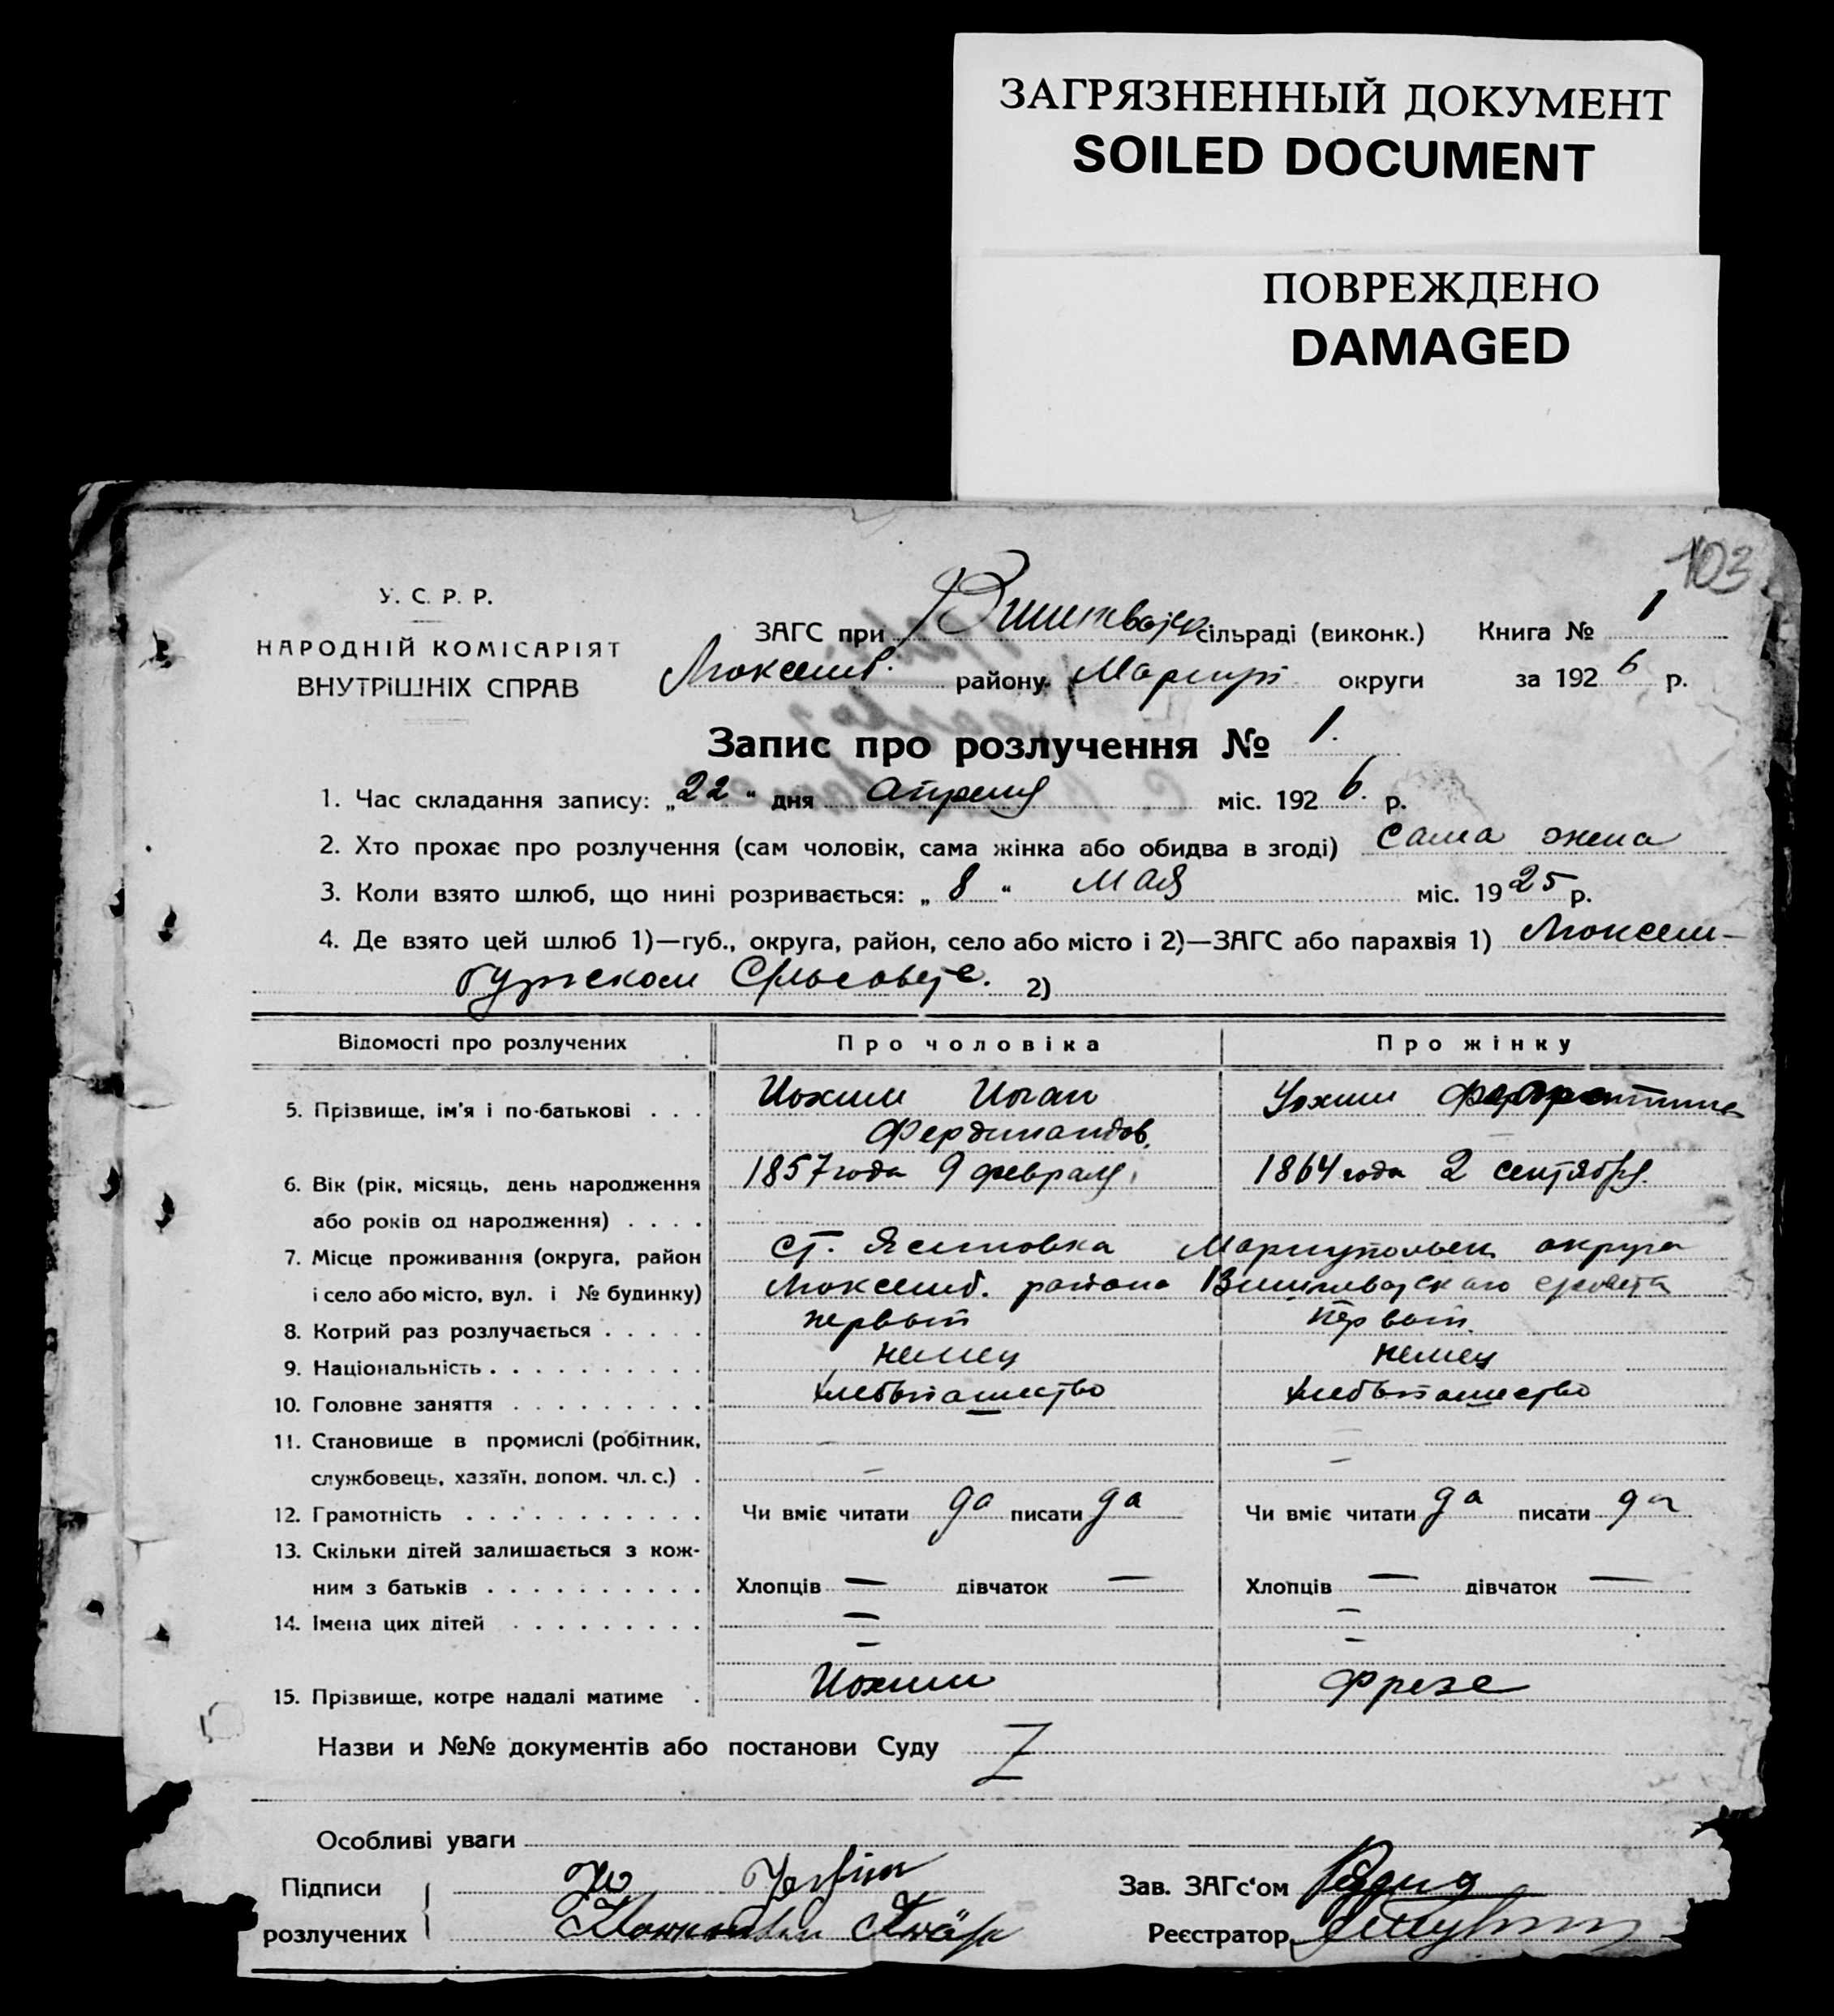 ЗАГРЯЗНЕННЫЙ ДОКУМЕНТ
SOILED DOCUMENT
ПОВРЕЖДЕНО
DAMAGED
103
У. С. Р. Р.
НАРОДНІЙ КОМІСАРІЯТ
ВНУТРІШНІХ СПРАВ
ЗАГС при сільраді (виконк.) Книга № 1
Люксемб. району Мариуп округи за 1926 р.
Запис про розлучення № 1.
1. Час складання запису: „22“ дня апреля міс. 1926. р.
2. Хто прохає про розлучення (сам чоловік, сама жінка або обидва в згоді) сама жена
3. Коли взято шлюб, що нині розривається: „8“ мая міс. 1925 р.
4. Де взято цей шлюб 1)—губ., округа, район, село або місто і 2)—ЗАГС або парахвія 1) Люксем-
бургском Сельсовете. 2)
Відомості про розлучених Про чоловіка Про жінку
5. Прізвище, ім'я і по-батькові . . . Иохим Иоган Иохим
Фердинандов.
6. Вік (рік, місяць, день народження 1857 года 9 февраля 1864 года 2 сентября.
або років од народження) . . . .
7. Місце проживання (округа, район ст. Ясиновка Мариупольск округа
і село або місто, вул. і № будинку) Люксемб. района с/совета
8. Котрий раз розлучається . . . . . первый первый.
9. Національність . . . . . . . . . . немец немец
10. Головне заняття . . . . . . . . . хлебопашество хлебопашество
11. Становище в промислі (робітник, — —
службовець, хазяїн, допом. чл. с.) . — —
12. Грамотність . . . . . . . . . . . Чи вміє читати да писати да Чи вміє читати да писати да
13. Скільки дітей залишається з кож-
ним з батьків . . . . . . . . . . Хлопців — дівчаток — Хлопців — дівчаток —
14. Імена цих дітей . . . . . . . . . — —
— —
15. Прізвище, котре надалі матиме . Иохим Фрезе
Назви и №№ документів або постанови Суду
Особливі уваги
Підписи Зав. ЗАГс‘ом
розлучених Реєстратор